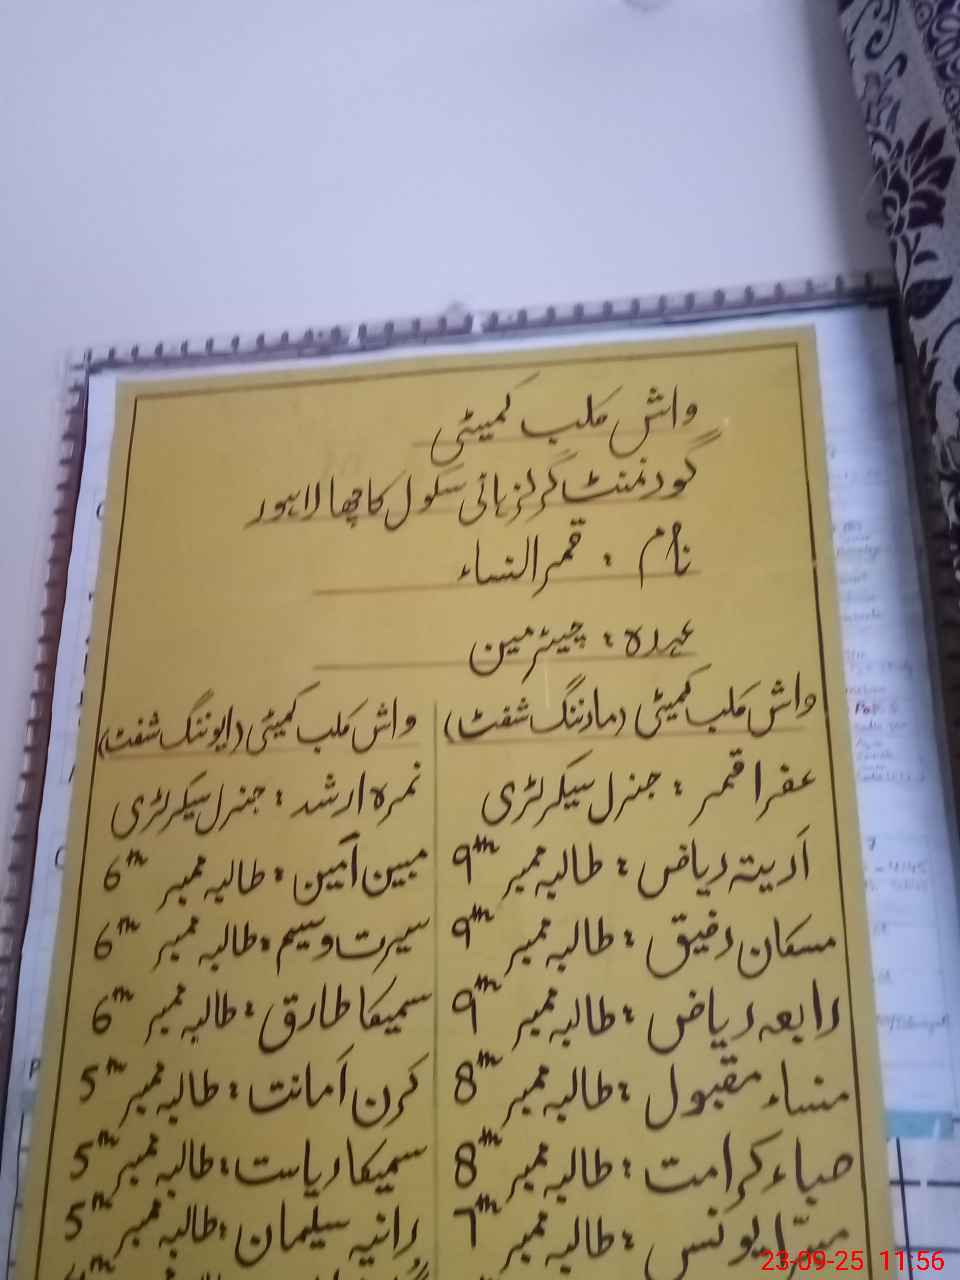 واش کلب کمیٹی
گورنمنٹ گرلز ہائی سکول کاچھا لاہور
نام : قمر النساء
عہدہ : چیئرمین
واش کلب کمیٹی (مارننگ شفٹ)
عفرا قمر : جنرل سیکرٹری
اریبہ ریاض : طالبہ ممبر 9th
مسکان رفیق : طالبہ ممبر 9th
رابعہ ریاض : طالبہ ممبر 9th
منساء مقبول : طالبہ ممبر 8th
صباء کرامت : طالبہ ممبر 8th
یونس : طالبہ ممبر 7th
واش کلب کمیٹی (ایوننگ شفٹ)
نمرہ ارشد : جنرل سیکرٹری
مبین آمین : طالبہ ممبر 6th
سیرت وسیم : طالبہ ممبر 6th
سمیکا طارق : طالبہ ممبر 6th
کرن امانت : طالبہ ممبر 5th
سمیکا ریاست : طالبہ ممبر 5th
رانیہ سلیمان : طالبہ ممبر 5th
23-09-25 11:56